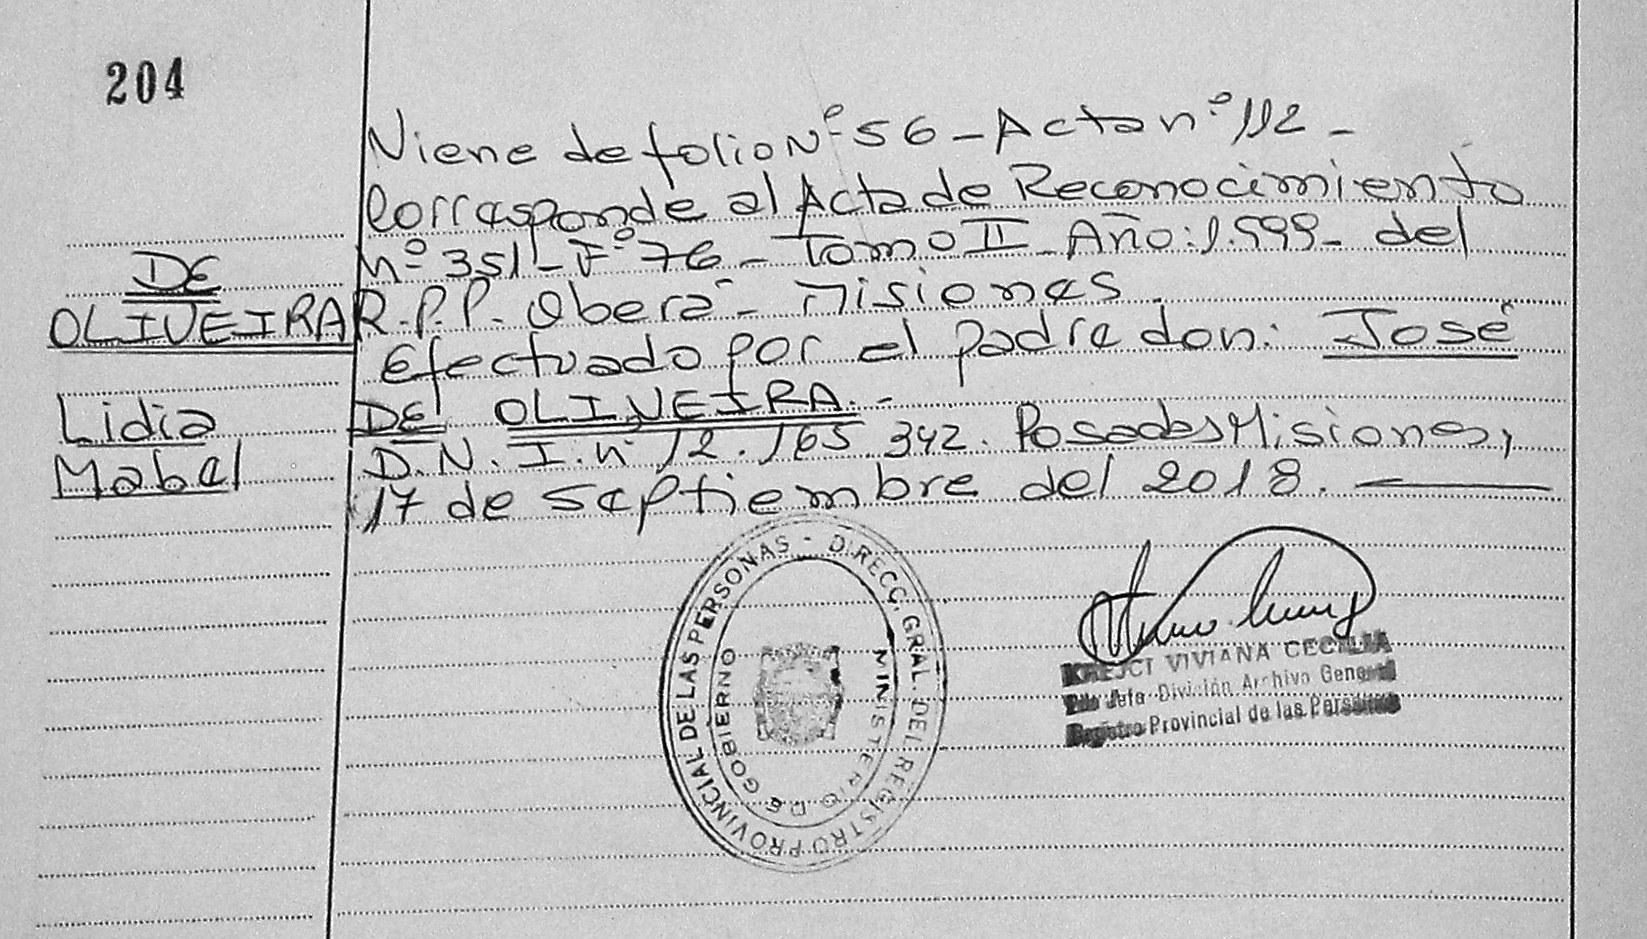 204
Viene de folio Nº 56 - Acta nº 112 -
Corresponde al Acta de Reconocimiento
nº 351 - Fº 76 - Tomo II - Año: 1.999 - del
R.P.P. Oberá - Misiones.
Efectuado por el padre don: José
DE OLIVEIRA. -
D.N.I. nº 12.165.342. Posadas, Misiones,
17 de septiembre del 2018.
DE
OLIVEIRA
Lidia
Mabel
DIRECC. GRAL. DEL REGISTRO PROVINCIAL DE LAS PERSONAS -
MINISTERIO DE GOBIERNO
KREJCI VIVIANA CECILIA
Jefa División Archivo General
Registro Provincial de las Personas